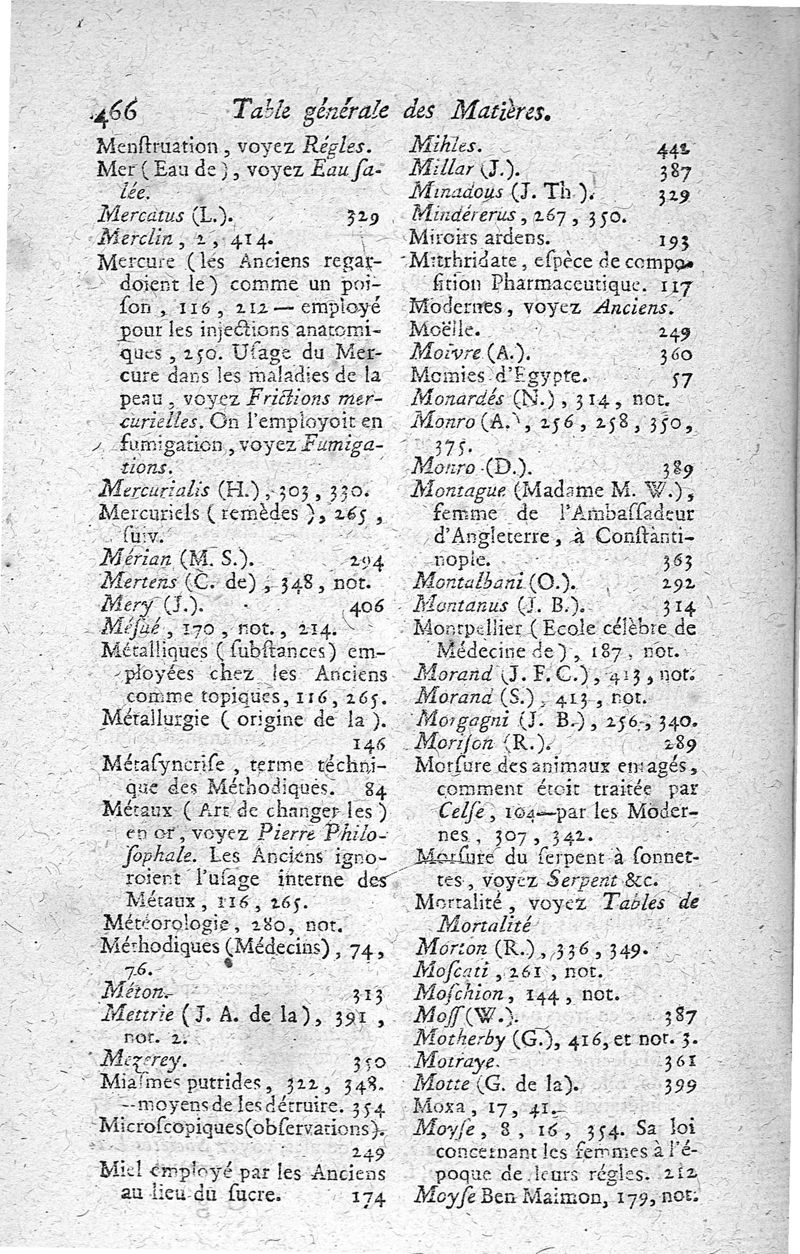 466 Table générale des Matières.
Menſtruation, voyez Régles.
Mer (Eau de), voyez Eau ſa-
lée.
Mercatus (L.). 329
Merclin, 2, 414.
Mercure (les Anciens regar-
doient le) comme un poi-
ſon, 116, 212 — employé
pour les injections anatomi-
ques, 250. Uſage du Mer-
cure dans les maladies de la
peau, voyez Frictions mer-
curielles. On l'employoit en
fumigation, voyez Fumiga-
tions.
Mercurialis (H.), 303, 330.
Mercuriels (remèdes), 265,
ſuiv.
Mérian (M. S.). 294
Mertens (C. de), 348, not.
Mery (J.). 406
Méſué, 170, not., 214.
Métalliques (ſubſtances) em-
ployées chez les Anciens
comme topiques, 116, 265.
Métallurgie (origine de la).
146
Métaſyncriſe, terme téchni-
que des Méthodiques. 84
Métaux (Art de changer les)
en or, voyez Pierre Philo-
ſophale. Les Anciens igno-
roient l'uſage interne des
Métaux, 116, 265.
Météorologie, 280, not.
Méthodiques (Médecins), 74,
76.
Méton. 313
Mettrie (J. A. de la), 391,
not. 2.
Mezerey. 350
Miaſmes putrides, 322, 348.
—moyens de les détruire. 354
Microſcopiques (obſervations).
249
Miel employé par les Anciens
au lieu du ſucre. 174
Mihles. 442
Millar (J.). 387
Minadous (J. Th.). 329
Mindérerus, 267, 350.
Miroirs ardens. 193
Mitrhridate, eſpèce de compo-
ſition Pharmaceutique. 117
Modernes, voyez Anciens.
Moëlle. 249
Moivre (A.). 360
Momies d'Egypte. 57
Monardés (N.), 314, not.
Monro (A.), 256, 258, 350,
375.
Monro (D.). 389
Montague (Madame M. W.),
femme de l'Ambaſſadeur
d'Angleterre, à Conſtanti-
nople. 363
Montalbani (O.). 292
Montanus (J. B.). 314
Montpellier (Ecole célèbre de
Médecine de), 187, not.
Morand (J. F. C.), 413, not.
Morand (S.), 413, not.
Morgagni (J. B.), 256, 340.
Moriſon (R.). 289
Morſure des animaux enragés,
comment étoit traitée par
Celſe, 104—par les Moder-
nes, 307, 342.
Morſure du ſerpent à ſonnet-
tes, voyez Serpent &c.
Mortalité, voyez Tables de
Mortalité
Morton (R.), 336, 349.
Moſcati, 261, not.
Moſchion, 144, not.
Moſſ (W.). 387
Motherby (G.), 416, et not. 3.
Motraye. 361
Motte (G. de la). 399
Moxa, 17, 41.
Moyſe, 8, 16, 354. Sa loi
concernant les femmes à l'é-
poque de leurs régles. 212
Moyſe Ben Maimon, 179, not.